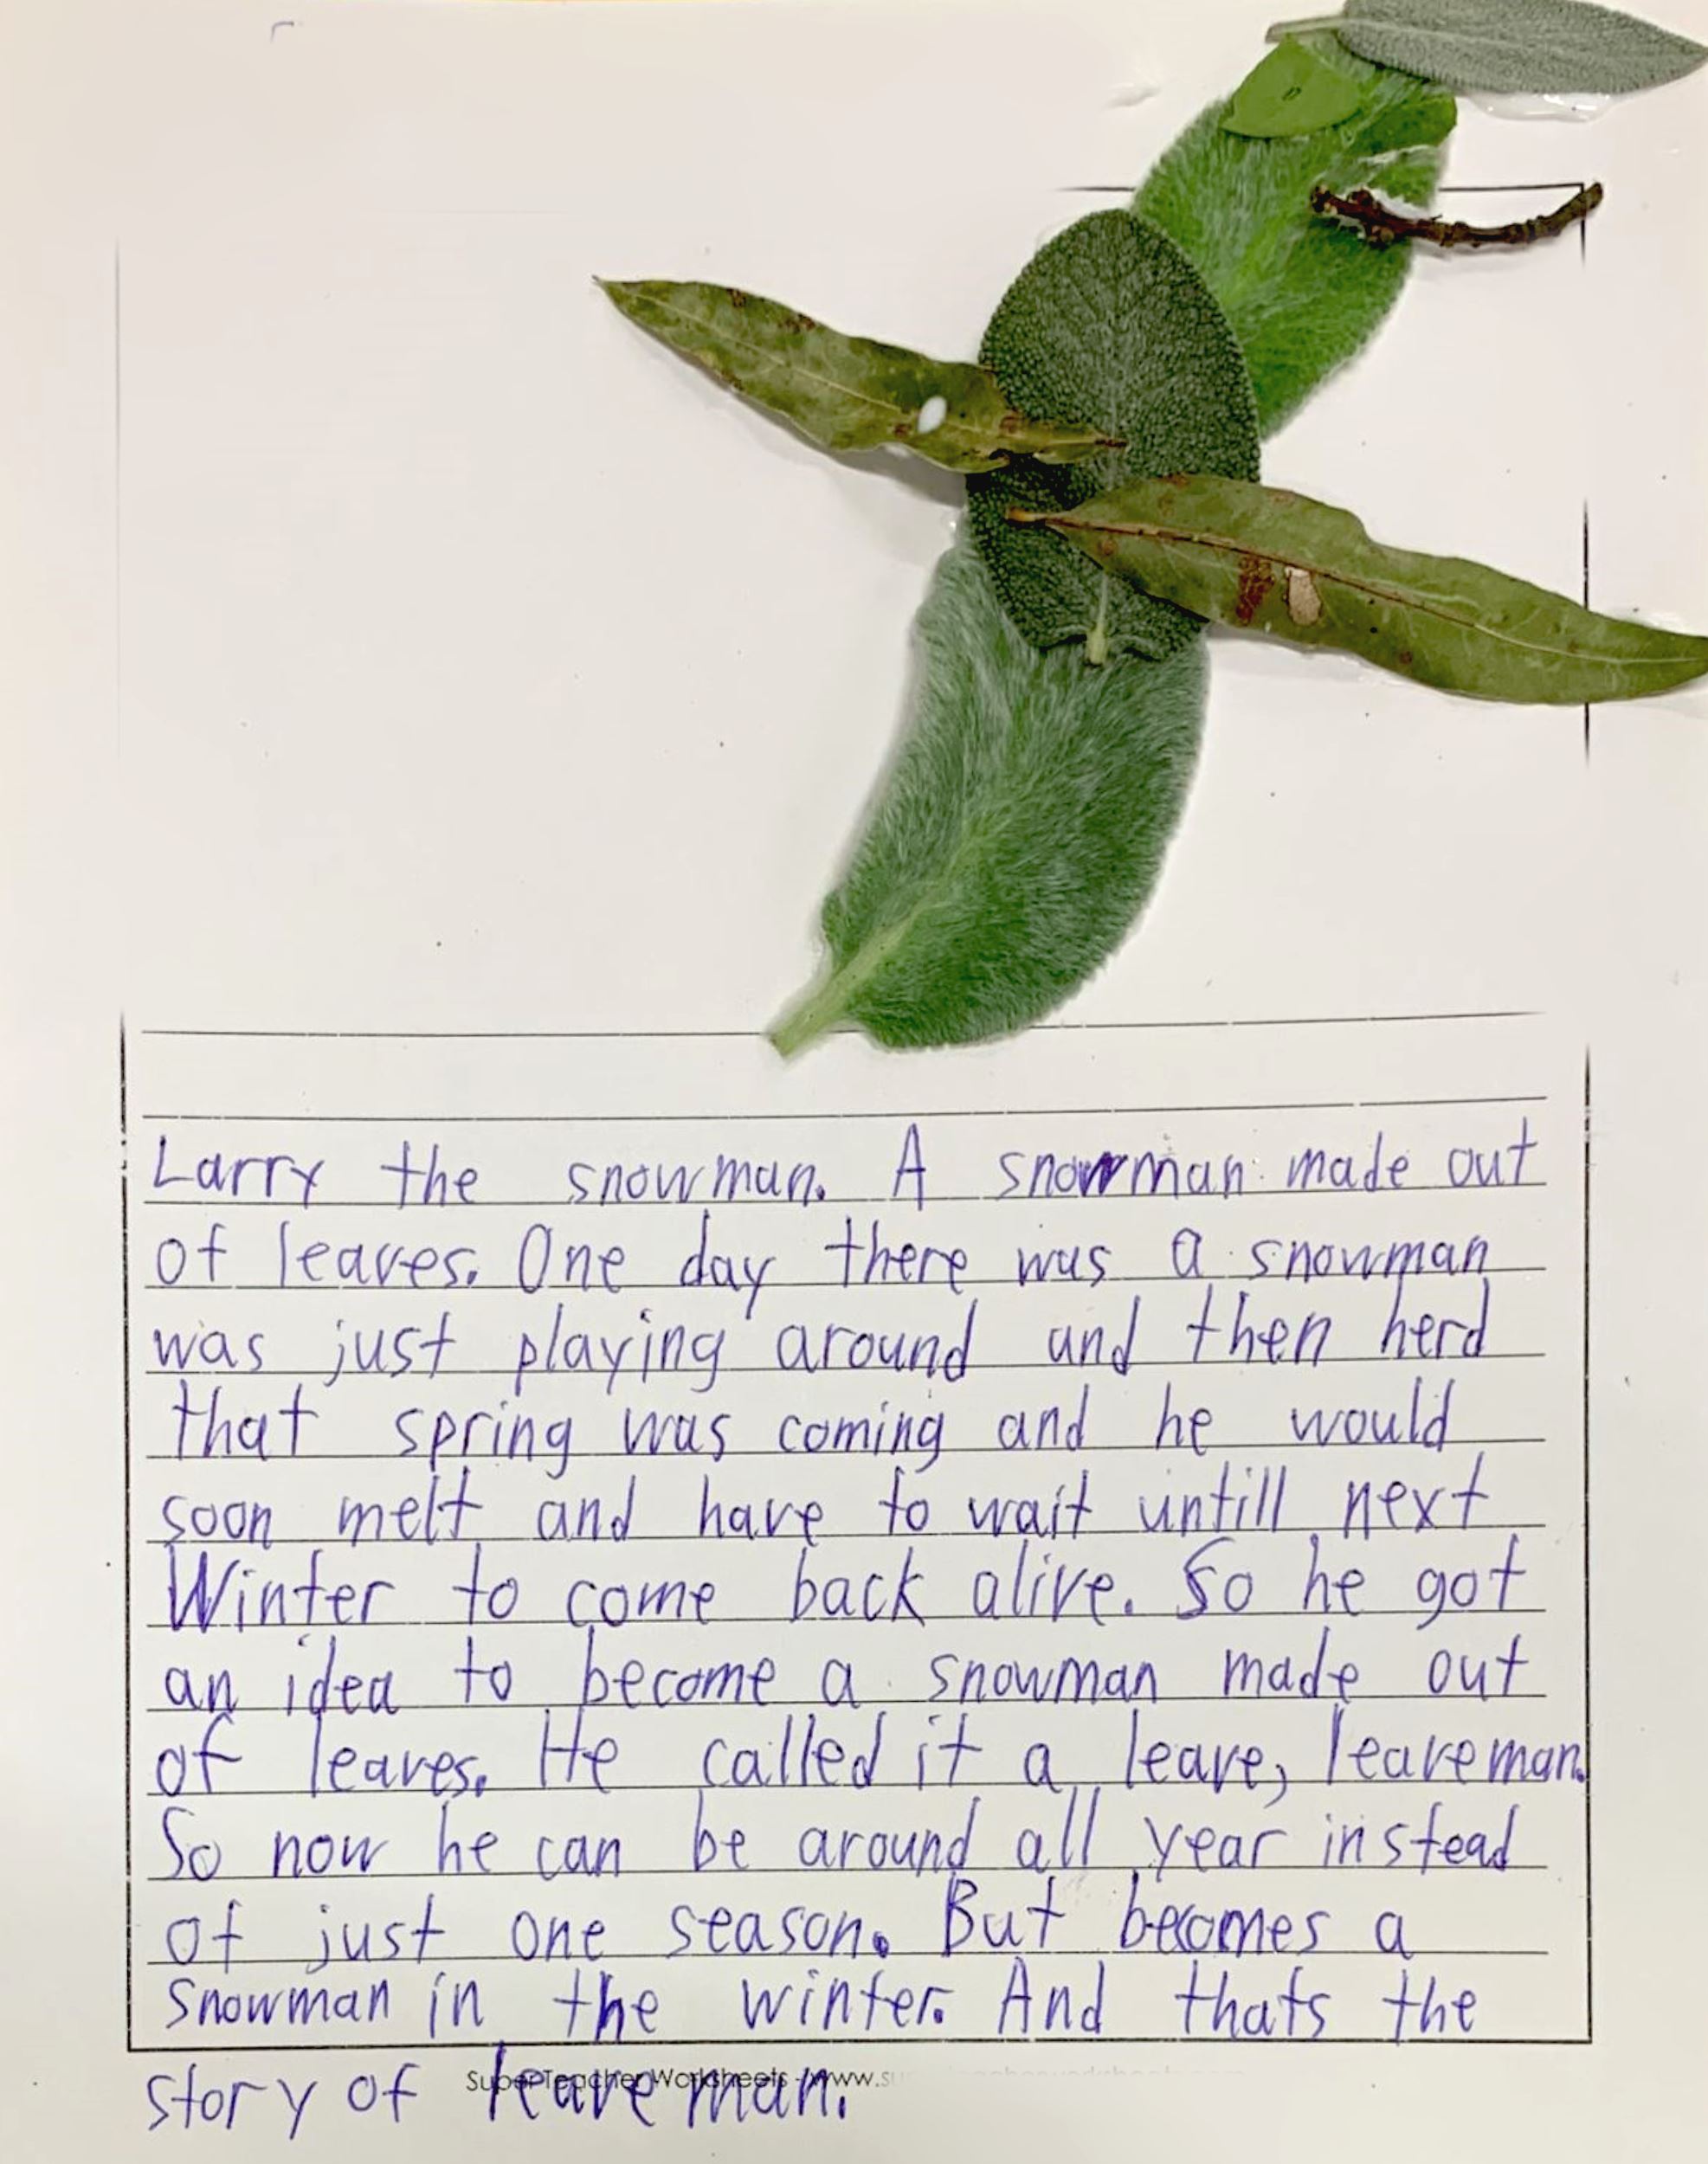 Larry the snowman. A snowman made out
of leaves. One day there was a snowman
was just playing around and then herd
that spring was coming and he would
soon melt and have to wait untill next
Winter to come back alive. So he got
an idea to become a snowman made out
of leaves. He called it a leave, leaveman.
So now he can be around all year instead
of just one season. But becomes a
snowman in the winter. And thats the
story of leave man.
Super Teacher Worksheets - www.s